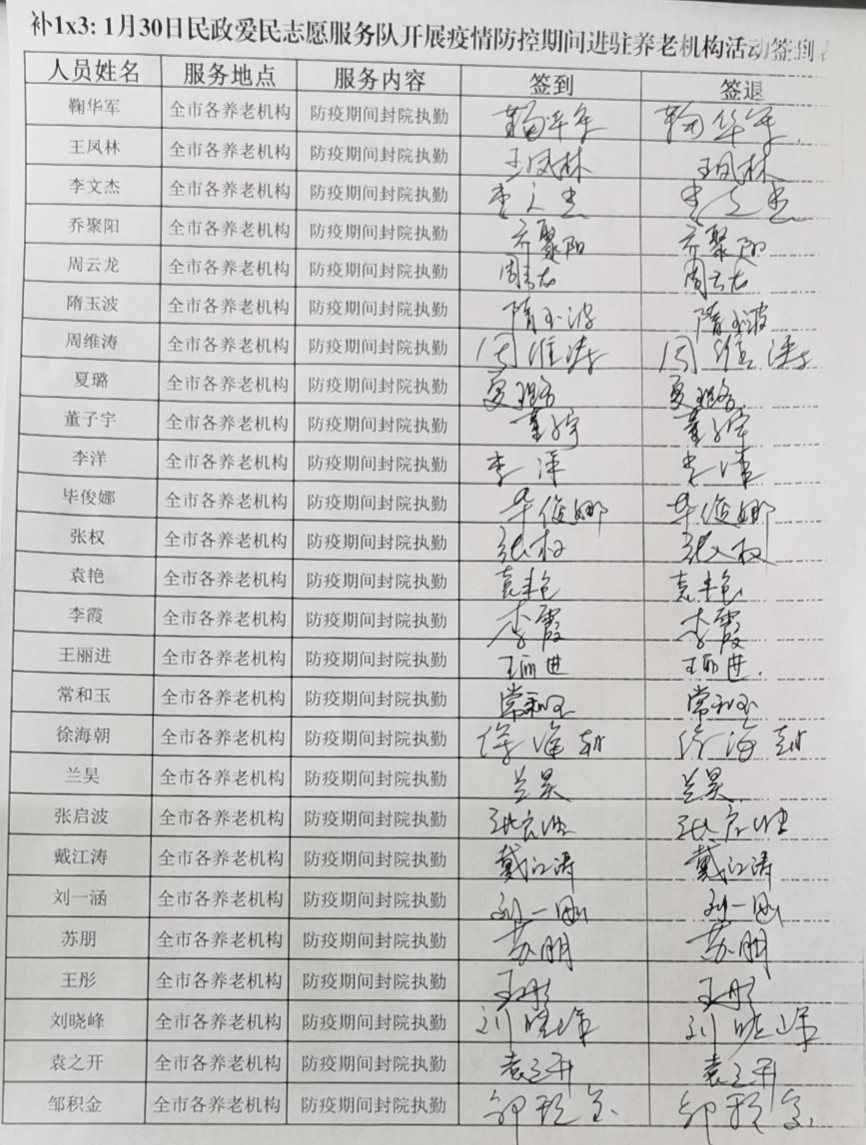 补1x3: 1月30日民政爱民志愿服务队开展疫情防控期间进驻养老机构活动签到
人员姓名 服务地点 服务内容 签到 签退
鞠华军 全市各养老机构 防疫期间封院执勤 鞠华军 鞠华军
王凤林 全市各养老机构 防疫期间封院执勤 王凤林 王凤林
李文杰 全市各养老机构 防疫期间封院执勤 李文杰 李文杰
乔聚阳 全市各养老机构 防疫期间封院执勤 乔聚阳 乔聚阳
周云龙 全市各养老机构 防疫期间封院执勤 周云龙 周云龙
隋玉波 全市各养老机构 防疫期间封院执勤 隋玉波 隋玉波
周维涛 全市各养老机构 防疫期间封院执勤 周维涛 周维涛
夏璐 全市各养老机构 防疫期间封院执勤 夏璐 夏璐
董子宇 全市各养老机构 防疫期间封院执勤 董子宇 董子宇
李洋 全市各养老机构 防疫期间封院执勤 李洋 李洋
毕俊娜 全市各养老机构 防疫期间封院执勤 毕俊娜 毕俊娜
张权 全市各养老机构 防疫期间封院执勤 张权 张权
袁艳 全市各养老机构 防疫期间封院执勤 袁艳 袁艳
李霞 全市各养老机构 防疫期间封院执勤 李霞 李霞
王丽进 全市各养老机构 防疫期间封院执勤 王丽进 王丽进.
常和玉 全市各养老机构 防疫期间封院执勤 常和玉 常和玉
徐海朝 全市各养老机构 防疫期间封院执勤 徐海朝 徐海朝
兰昊 全市各养老机构 防疫期间封院执勤 兰昊 兰昊
张启波 全市各养老机构 防疫期间封院执勤 张启波 张启波
戴江涛 全市各养老机构 防疫期间封院执勤 戴江涛 戴江涛
刘一涵 全市各养老机构 防疫期间封院执勤 刘一涵 刘一涵
苏朋 全市各养老机构 防疫期间封院执勤 苏朋 苏朋
王彤 全市各养老机构 防疫期间封院执勤 王彤 王彤
刘晓峰 全市各养老机构 防疫期间封院执勤 刘晓峰 刘晓峰
袁之开 全市各养老机构 防疫期间封院执勤 袁之开 袁之开
邹积金 全市各养老机构 防疫期间封院执勤 邹积金 邹积金